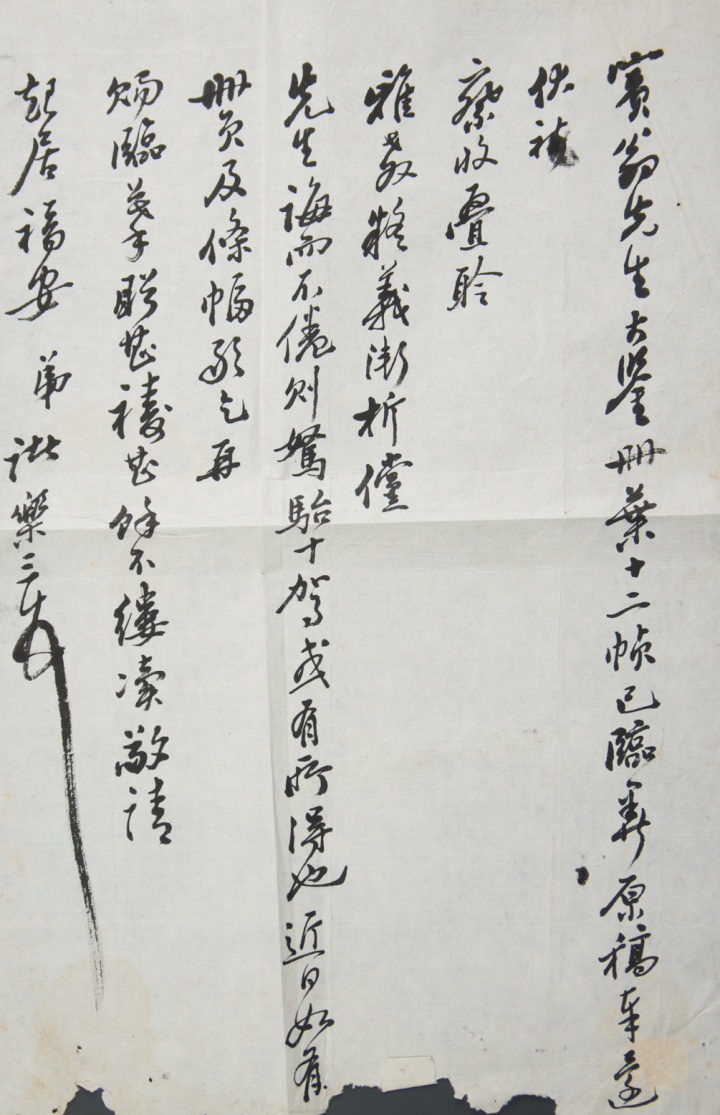 賓翁先生大鑒冊葉十二幀已臨畢原稿奉還
伏祈
察收疊聆
雅教疑義漸析儻
先生誨而不倦則駑駘十駕或有所得也近日如有
冊頁及條幅敬乞再
賜臨摹盼甚禱甚餘不縷凟敬請
起居福安 弟 樂三